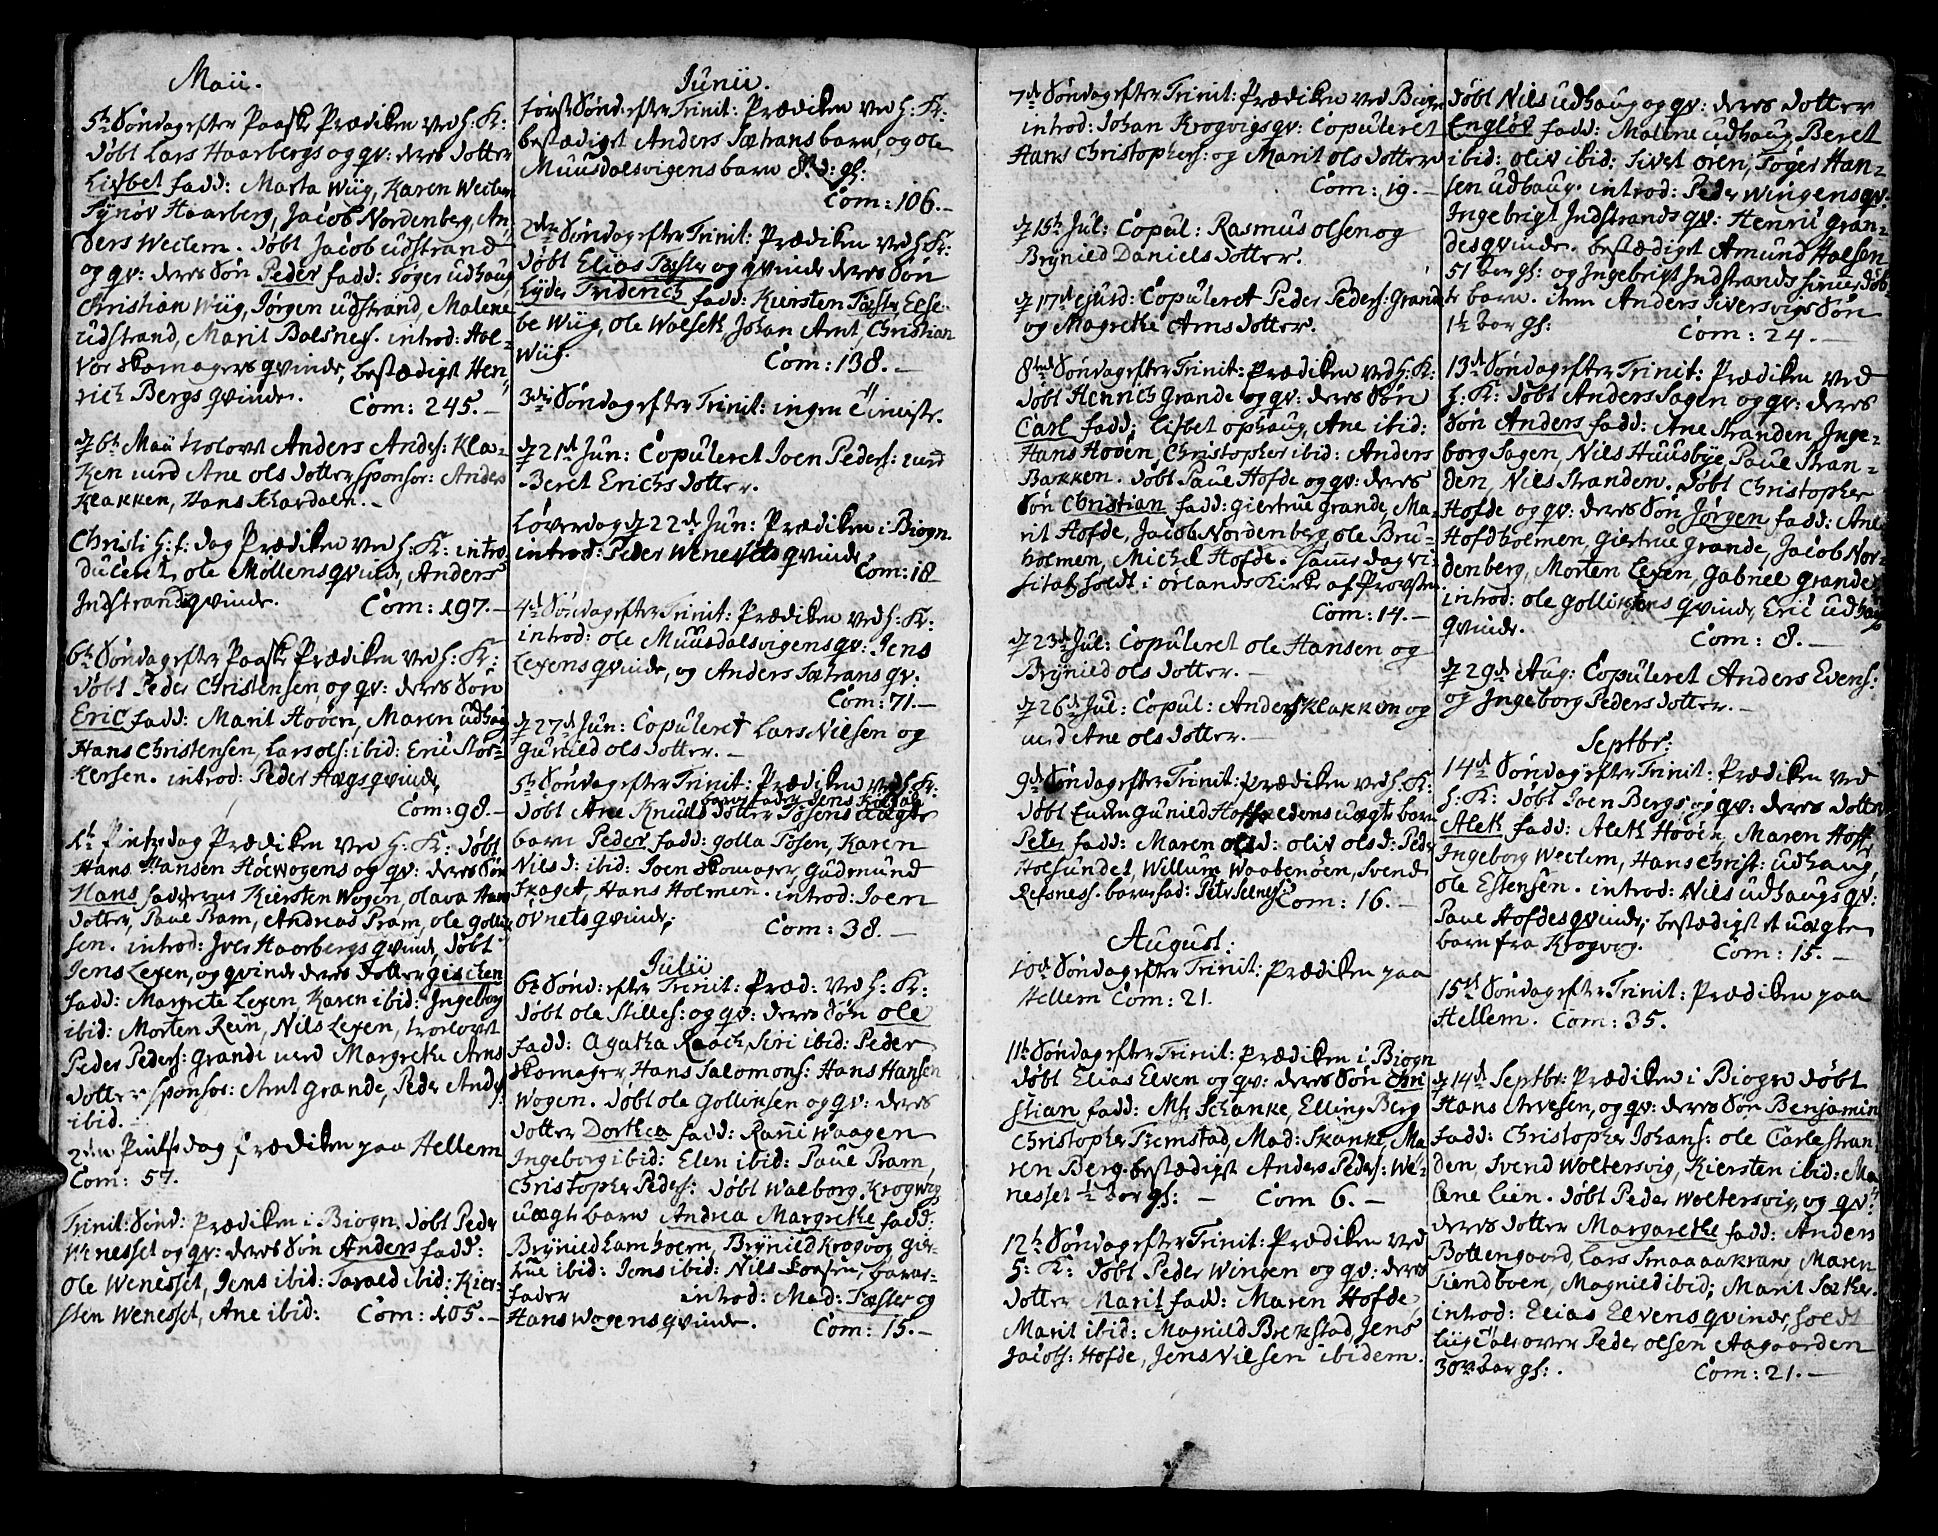 Maii.
5te Søndag efter Paaske Prædiken ved H: K:
døbt Lars Haarbergs og qv: deres dotter
Lisbet fadd: Marta Wiig, Karen Weclem
Synøv Haarberg, Jacob Nordenberg, An-
ders Weclem. døbt Jacob udstrand
og qv: deres Søn Peder fadd: Tøger udhaug
Christian Wiig, Jørgen udstrand, Malene
udstrand, Marit Balsnes. introd: Hal-
vor skomagers qvinde, bestædiget Hen-
rich Bergs qvinde. Com: 245. —
d 6te Maii trolovet Anders Anders: Klak-
ken med Ane ols dotter sponsor: Anders
Klakken, Hans Schardaln. —
Christi H: f: dag Prædiken ved H: K: intro
ducent, ole Møllens qvinde, Anders
Indstrands qvinde. Com: 197. —
6te Søndag efter Paaske Prædiken ved H: K:
døbt Peder Christensen, og qv: deres Søn
Eric fadd: Marit Hoøen, Maren udhaug
Hans Christensen, Lars ols: ibid: Eric Stor-
kersen. introd: Peder Haugs qvinde
Com: 98. —
1te Pintsdag Prædiken ved H: K: døbt
Hans Hansen Høewogens og qv: deres Søn
Hans fadderne Kiersten Wogen, olava Hans
dotter, Paul Pram, Andreas Pram, ole Gollin
sen. introd: Iver Haarbergs qvinde, døbt
Jens Lexen, og qvinde deres dotter Gischen
fadd: Margrete Lexen, Karen ibid: Ingeborg
ibid: Morten Rein, Nils Lexen, trolovet
Peder Peders: Grande med Margrethe Arns
dotter sponsor: Arnt Grande, Peder Anders
ibid. —
2den Pintsdag Prædiken paa Hellem
Com: 57.
Trinit: Sønd: Prædiken i Biogn, døbt Peder
Wenesset og qv: deres Søn Anders fadd:
ole Wenesset, Jens ibid: Tarald ibid: Kier-
sten Wenesset, Ane ibid: Com: 105. —
Junii.
først Sønd: efter Trinit: Prædiken ved H: K:
bestædiget Anders Sætrans barn, og ole
Muusdalsvigens barn 8 d: gl:
Com: 106. —
2den Søndag efter Trinit: Prædiken ved H: K:
døbt Elias Fæster og qvinde deres Søn
Lyder Friderich fadd: Kiersten Fæster, Else-
be Wiig, ole Wolseth, Johan Arnt, Christian
Wiig. Com: 138. —
3die Søndag efter Trinit: ingen ministr.
d 21de Jun: Copuleret Joen Peders: med
Beret Erichs dotter.
Løverdag d 22de Jun: Prædiken i Biogn.
introd: Peder Wenessets qvinde
Com: 18
4de Søndag efter Trinit: Prædiken ved H: K:
introd: ole Muusdalsvigens qv: Jens
Lexens qvinde, og Anders Sætrans qv:
Com: 71. —
d 27de Jun: Copuleret Lars Nilsen og
Gunild ols dotter. —
5te Søndag efter Trinit: Prædiken ved H: K:
barne fader Jens
døbt Ane Knuds dotter Tøsens uægte
barn Peder fadd: Golla Tøsen, Karen
Nils d: ibid: Joen skomager, Gudmund
Skaget, Hans Holmen. introd: Joen
øvnets qvinde, Com: 38. —
Julii
6te Sønd: efter Trinit: Præd: ved H: K:
døbt ole Stilles: og qv: deres Søn ole
fadd: Agatha Raach, Siri ibid: Peder
skomager Hans Salomons: Hans Hansen
Wogen. døbt ole Gollinsen og qv: deres
dotter Dorthea fadd: Ranni Waagen
Ingeborg ibid: Elen ibid: Paul Pram,
Christopher Peders: døbt Walborg Krogwig
uægte barn Andrea Margrethe fadd:
Brynild Lamhoern, Brynild Krogvog, Gier-
true ibid: Jens ibid: Nils, barne-
fader introd: Mad: Fæster og
Hans Wogens qvinde. Com: 15. —
7de Søndag efter Trinit: Prædiken ved Biogn
introd: Johan Krogvigs qv: Copuleret
Hans Christophers: og Marit ols dotter
Com: 19. —
d 15te Jul: Copul: Rasmus olsen og
Brynild Daniels dotter.
d 17de ejusd: Copuleret Peder Peders: Grande
og Magrethe Arns dotter.
8tende Søndag efter Trinit: Prædiken ved H: K:
døbt Henrich Grande og qv: deres Søn
Carl fadd: Lisbet ophaug, Ane ibid:
Hans Hoøen, Christopher ibid: Anders
Bakken. døbt Paul Hofde og qv: deres
Søn Christian fadd: Giertrue Grande, Ma-
rit Hofde, Jacob Nordenberg ole Bru-
holmen, Michel Hofde. samme dag vi-
sitatz holdt i orlands Kirke af Provsten
Com: 14. —
d 23de Jul: Copuleret ole Hansen og
Brynild ols dotter. —
d 26de Jul: Copul: Anders Klakken og
med Ane ols dotter. —
9de Søndag efter Trinit: Prædiken ved H: K:
døbt Enken Gunild uægte barn
Peter fadd: Maren ols d: oliv ols d: Peder
Holsundet, Willum Waabenøen, Svend
Refsnes. barnefad: Petr Selnes Com: 16. —
August:
10de Søndag efter Trinit: Prædiken paa
Hellem Com: 21.
11te Søndag efter Trinit: Prædiken i Biogn
døbt Elias Elven og qv: deres Søn Chri
stian fadd: Mr Schanke, Elling Berg
Christopher Fremstad, Mad: Skanke, Ma-
ren Berg. bestædiget Anders Peders: We-
nesset ½ aar gl: — Com 6. —
12te Søndag efter Trinit: Prædiken ved
H: K: døbt Peder Winsen og qv: deres
dotter Marit fadd: Maren Hofde,
Marit ibid: Magnild Brekstad, Jens
Jacobs: Hofde, Jens Nilsen ibidem.
døbt Nils udhaug og qv: deres dotter
Engløv fadd: Malene udhaug, Beret
ibid: oliv ibid: Sivet øren, Tøger Han-
sen udhaug. introd: Peder Wingens qv:
Ingebrigt Indstrands qv: Henric Gran-
des qvinde. bestædiget Amund Holsen
51 aar gl: og Ingebrigt Indstrands hiemedøb-
te barn. item Anders Siversvigs Søn
1½ aar gl: Com: 24. —
13de Søndag efter Trinit: Prædiken ved
H: K: døbt Anders Sagen og qv: deres
Søn Anders fadd: Ane Stranden, Inge-
borg Sagen, Nils Huusbye, Paul Stran-
den, Nils Stranden. døbt Christopher
Hofde og qv: deres Søn Jørgen fadd: Ane
Hofdholmen, Giertrue Grande, Jacob Nor-
denberg, Morten Lexen, Gabriel Grande,
introd: ole Gollinsens qvinde, Eric udhaugs
qvinde. Com: 8. —
d 29de Aug: Copuleret Anders Evens:
og Ingeborg Peders dotter. —
Septbr:
14de Søndag efter Trinit: Prædiken ved
H: K: døbt Joen Bergs og qv: deres dotter
Aleth fadd: Aleth Hoøen, Maren Hoff
Ingeborg Weclem, Hans Christ: udhaug,
ole Estensen. introd: Nils udhaugs qv:
Paul Hofdes qvinde, bestædiget et uægte
barn fra Krogvog. Com: 15. —
15de Søndag efter Trinit: Prædiken paa
Hellem. Com: 35.
d 14de Septbr: Prædiken i Biogn døbt
Hans Arvesen, og qv: deres Søn Benjamin
fadd: Christopher Johans: ole Carlestran
den, Svend Woltersvig, Kiersten ibid: Ma
lene Lien. døbt Peder Woltersvig, og qv:
deres dotter Margarethe fadd: Anders
Bottengaard, Lars Smaaaakran, Maren
Tiendboen, Magnild ibid; Marit Sæther.
introd: Elias Elvens qvinde, holdt
Liigtale over Peder olsen Aagaarden
30 aar gl: . Com: 21. —